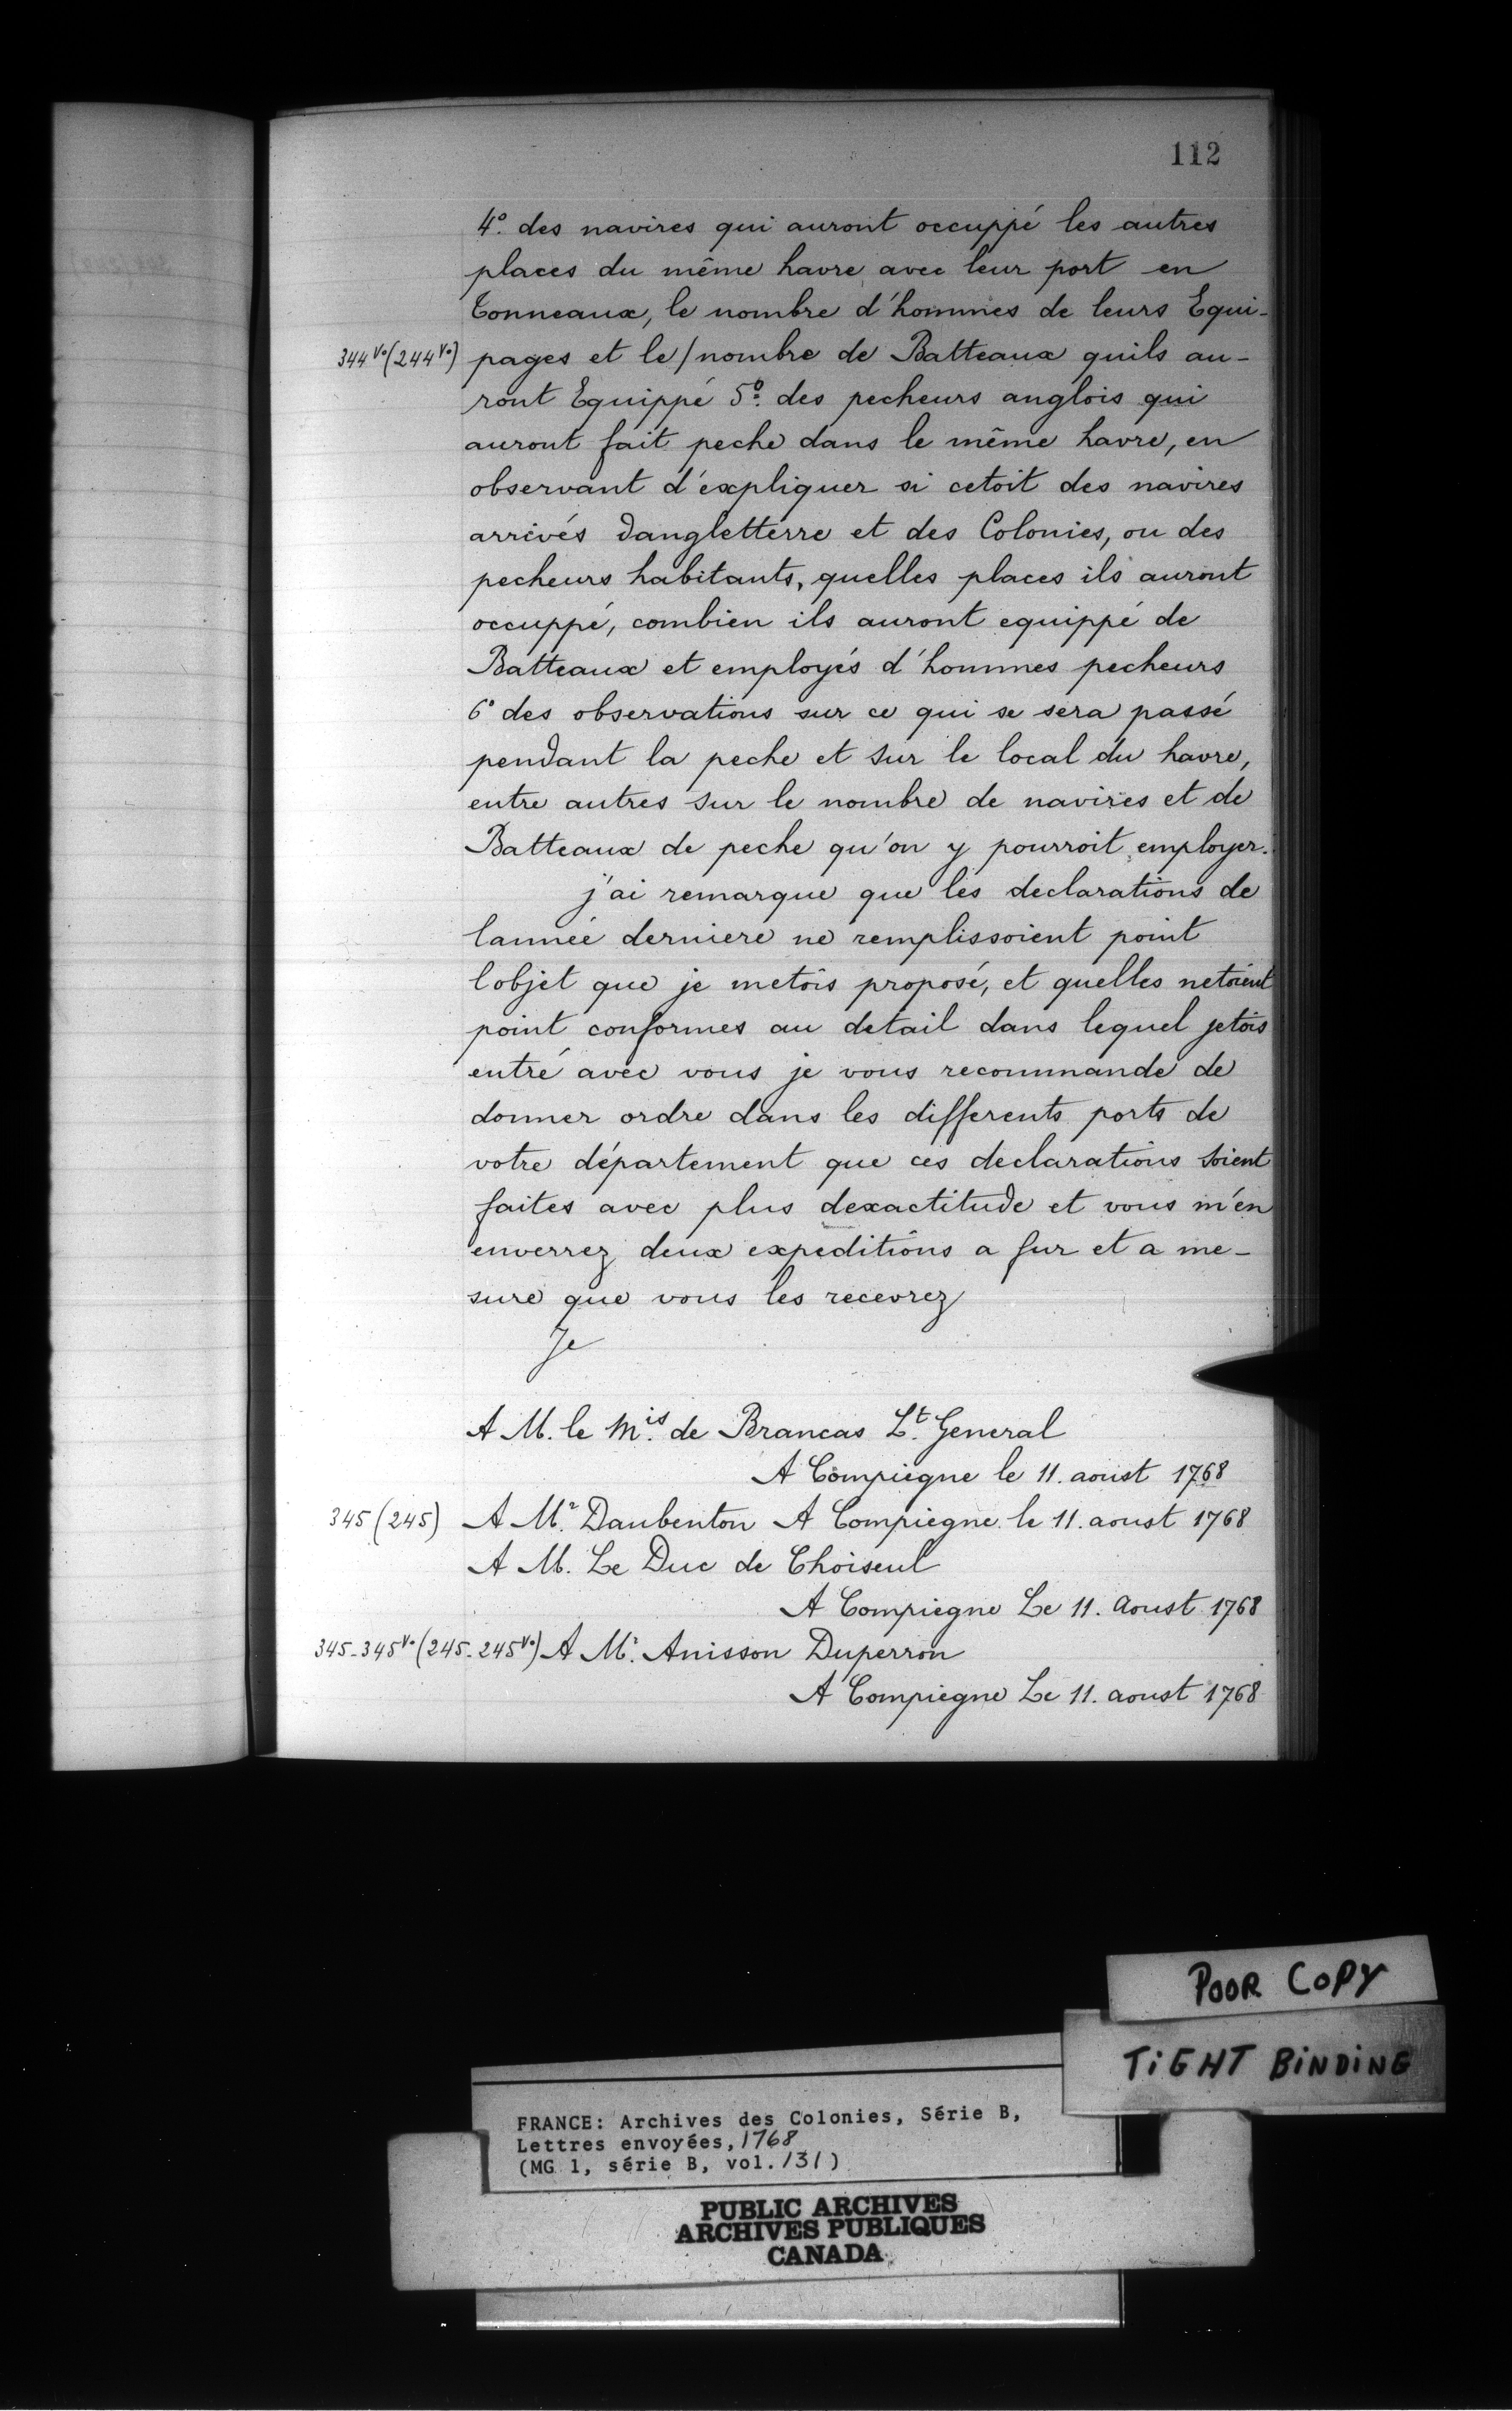 112
4º. des navires qui auront occuppé les autres
places du même havre avec leur port en
Tonneaux, le nombre d'hommes de leurs Equi-
344vo (244vo) pages et le/nombre de Batteaux quils au-
ront Equippé 5º. des pecheurs anglois qui
auront fait peche dans le même havre, en
observant d'expliquer si cetoit des navires
arrivés dangletterre et des Colonies, ou des
pecheurs habitants, quelles places ils auront
occuppé, combien ils auront equippé de
Batteaux et employés d'hommes pecheurs
6º des observations sur ce qui se sera passé
pendant la peche et sur le local du havre,
entre autres sur le nombre de navires et de
Batteaux de peche qu'on y pourroit employer.
j'ai remarque que les declarations de
lannée derniere ne remplissoient point
lobjet que je metois proposé, et quelles netoient
point conformes au detail dans lequel jetois
entré avec vous je vous recommande de
donner ordre dans les differents ports de
votre département que ces declarations soient
faites avec plus dexactitude et vous m'en
enverrez deux expeditions a fur et a me-
sure que vous les recevrez
Je
A M. le Mis. de Brancas Lt. General
A Compiegne le 11. aoust 1768
345 (245) A Mr. Daubenton A Compiegne le 11. aoust 1768
A M. Le Duc de Choiseul
A Compiegne Le 11. aoust 1768
345-345vo (245-245vo) A Mr. Anisson Duperron
A Compiegne Le 11. aoust 1768
POOR COPY
TIGHT BINDING
FRANCE: Archives des Colonies, Série B,
Lettres envoyées, 1768
(MG 1, série B, vol. 131)
PUBLIC ARCHIVES
ARCHIVES PUBLIQUES
CANADA